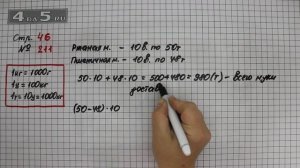 4OK5.RU
Стр. 46
№ 211
1кг = 1000г
1ц = 100кг
1т = 10ц = 1000кг
Ржаная м. - 10 в. по 50т
Пшеничная м. - 10 в. по 48т
50·10 + 48·10 = 500+480 = 980(т) - всего муки
достав
(50-48)·10